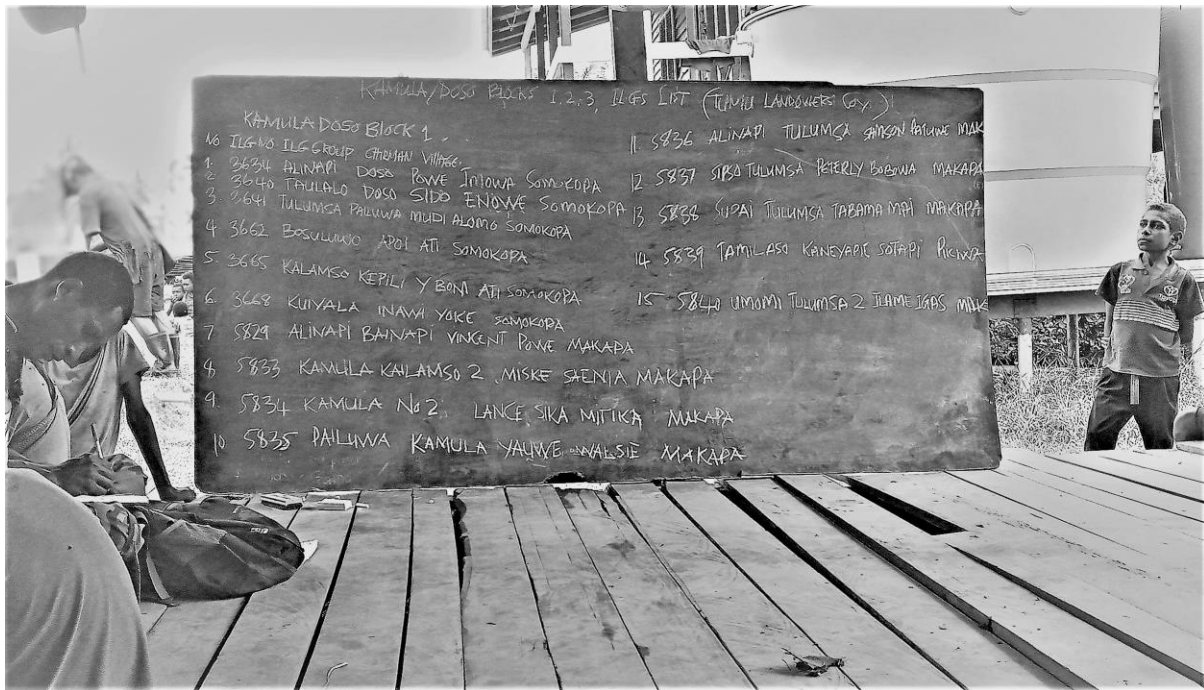 KAMULA/DOSO BLOCKS 1,2,3, ILGS LIST (TUMU LANDOWERS COY,)
KAMULA DOSO BLOCK 1.
No ILG NO ILG GROUP CHRMAN VILLAGE.
1. 3634 ALINAPI DOSO POWE IMOWA SOMOKOPA
2. 3640 TAULALO DOSO SIDO ENOWE SOMOKOPA
3. 3641 TULUMSA PAILUWA MUDI ALOMO SOMOKOPA
4 3662 BOSULUWO APOI ATI SOMOKOPA
5. 3665 KALAMSO KEPILI Y BONI ATI SOMOKOPA
6. 3668 KUIYALA INAWI YOKE SOMOKOPA
7 5829 ALINAPI BAINAPI VINCENT POWE MAKAPA
8 5833 KAMULA KAILAMSO 2 MISKE SAENIA MAKAPA
9. 5834 KAMULA No 2 LANCE SIKA MITIKA MAKAPA
10 5835 PAILUWA KAMULA YAUWE WALSIE MAKAPA
11. 5836 ALINAPI TULUMSA SAMSON PATUWE MAK
12. 5837 SIPSO TULUMSA PETERLY BOBOWA MAKAPA
13. 5838 SUPAI TULUMSA TABAMA MAI MAKAPA
14. 5839 TAMILASO KANEYAPIE SOTAPI
15. 5840 UMOMI TULUMSA 2 ILAME IGAS MAK